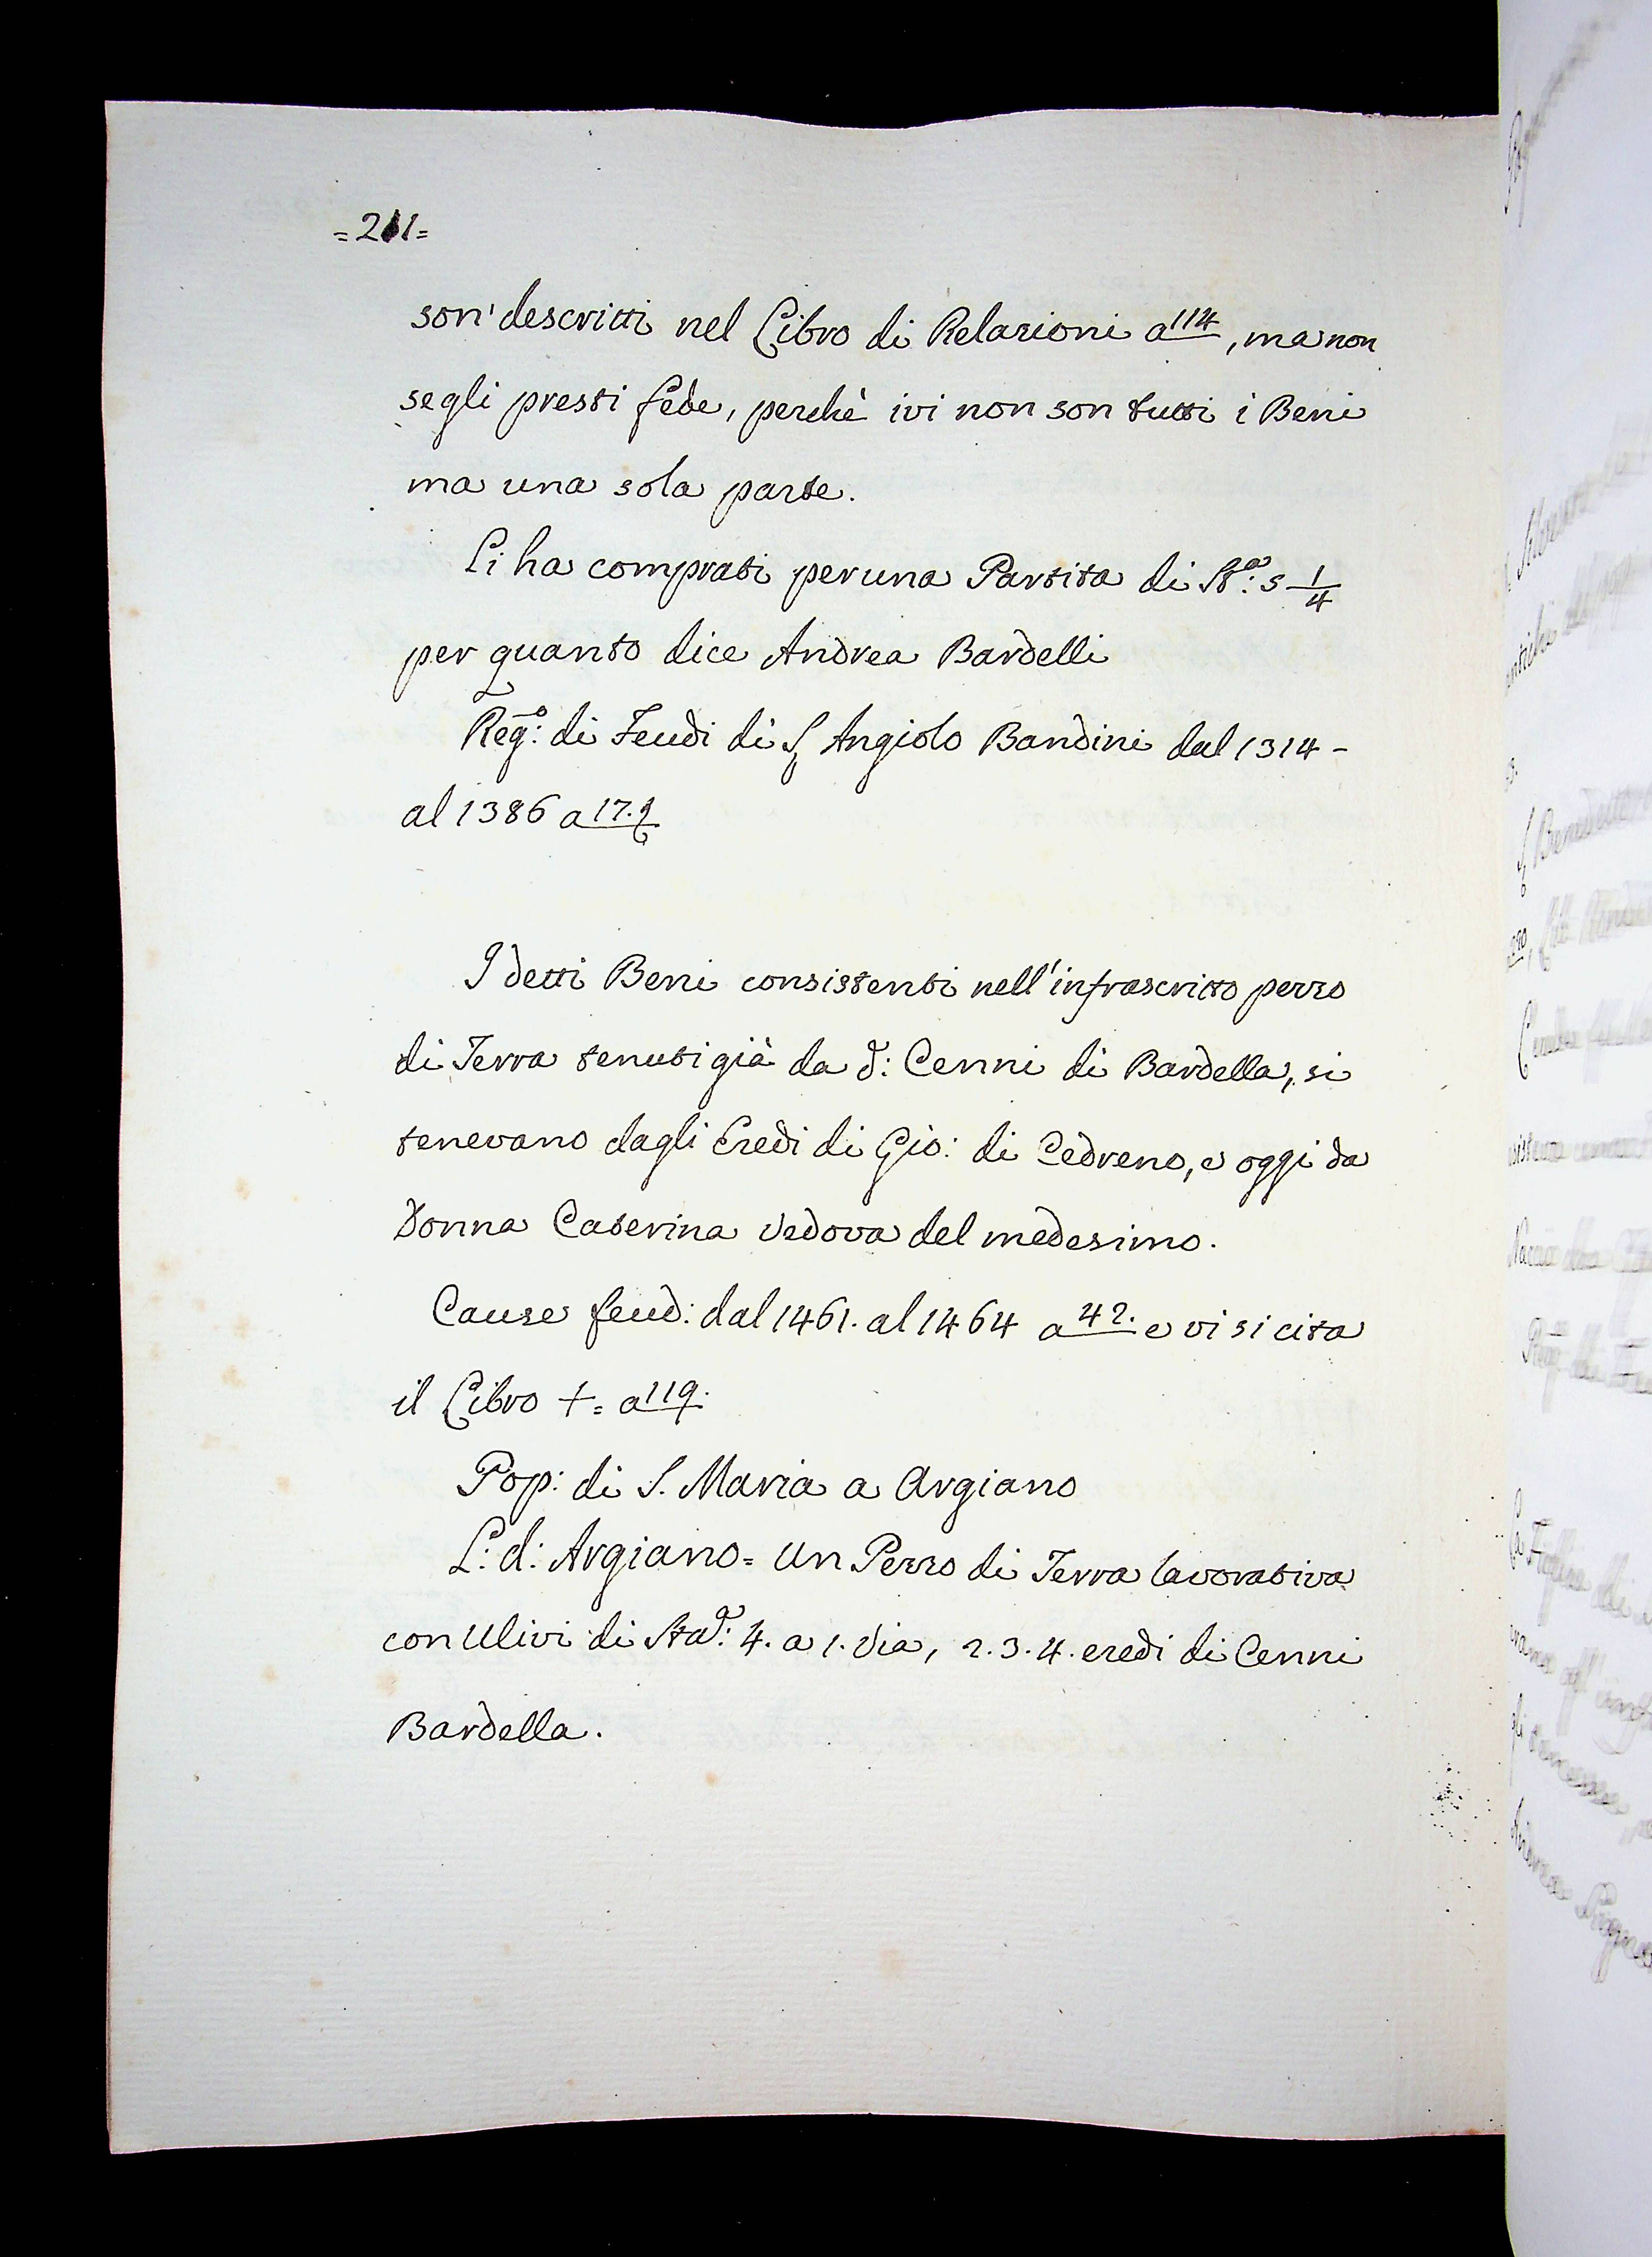 =211=
son' descritti nel Libro di Relazioni a 114, ma non
segli presti fede, perchè ivi non son tutti i Beni
ma una sola parte.
Li ha comprati per una Partita di St.ª: s 1/4
per quanto dice Andrea Bardelli
Reg.º: di Feudi di S. Angiolo Bandini dal 1314 -
al 1386 a 17.
I detti Beni consistenti nell'infrascritto pezzo
di Terra tenuti già da d: Cenni di Bardella, si
tenevano dagli Eredi di Gio: di Cedreno, e oggi da
Donna Caterina Vedova del medesimo.
Cause feud: dal 1461. al 1464 a 42. e vi si cita
il Libro +. = a 119.
Pop: di S. Maria a Argiano
L: d: Argiano = Un Pezzo di Terra lavorativa
con Ulivi di Sta.ª: 4. a 1. Via, 2. 3. 4. eredi di Cenni
Bardella.